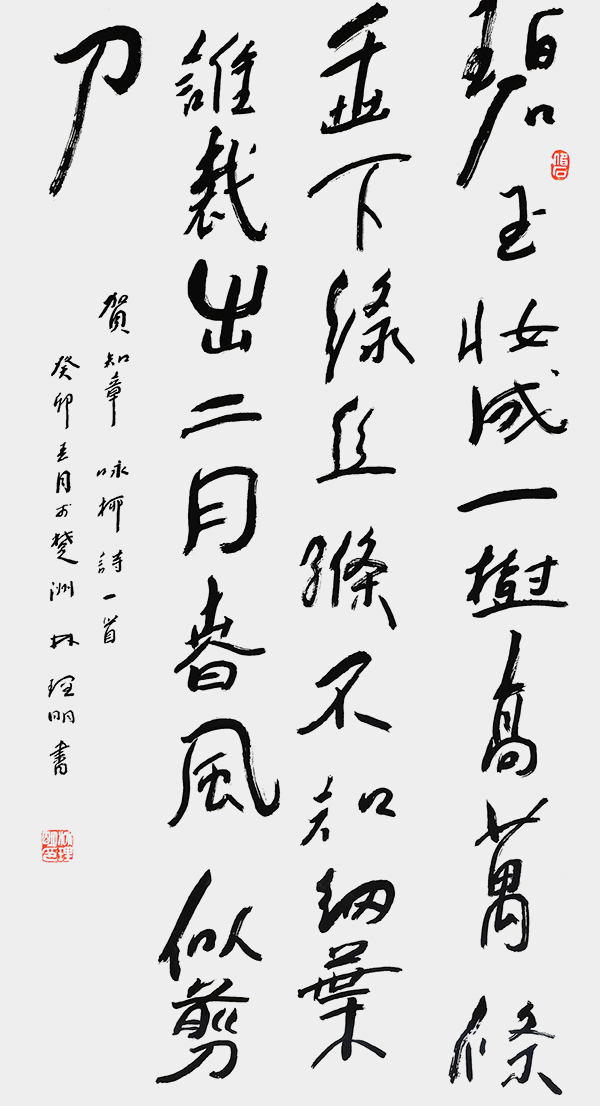 碧玉妆成一樹高萬條
垂下綠丝縧不知細葉
誰裁出二月春風似剪
刀
賀知章 咏柳詩一首
癸卯月於楚洲 林理明書